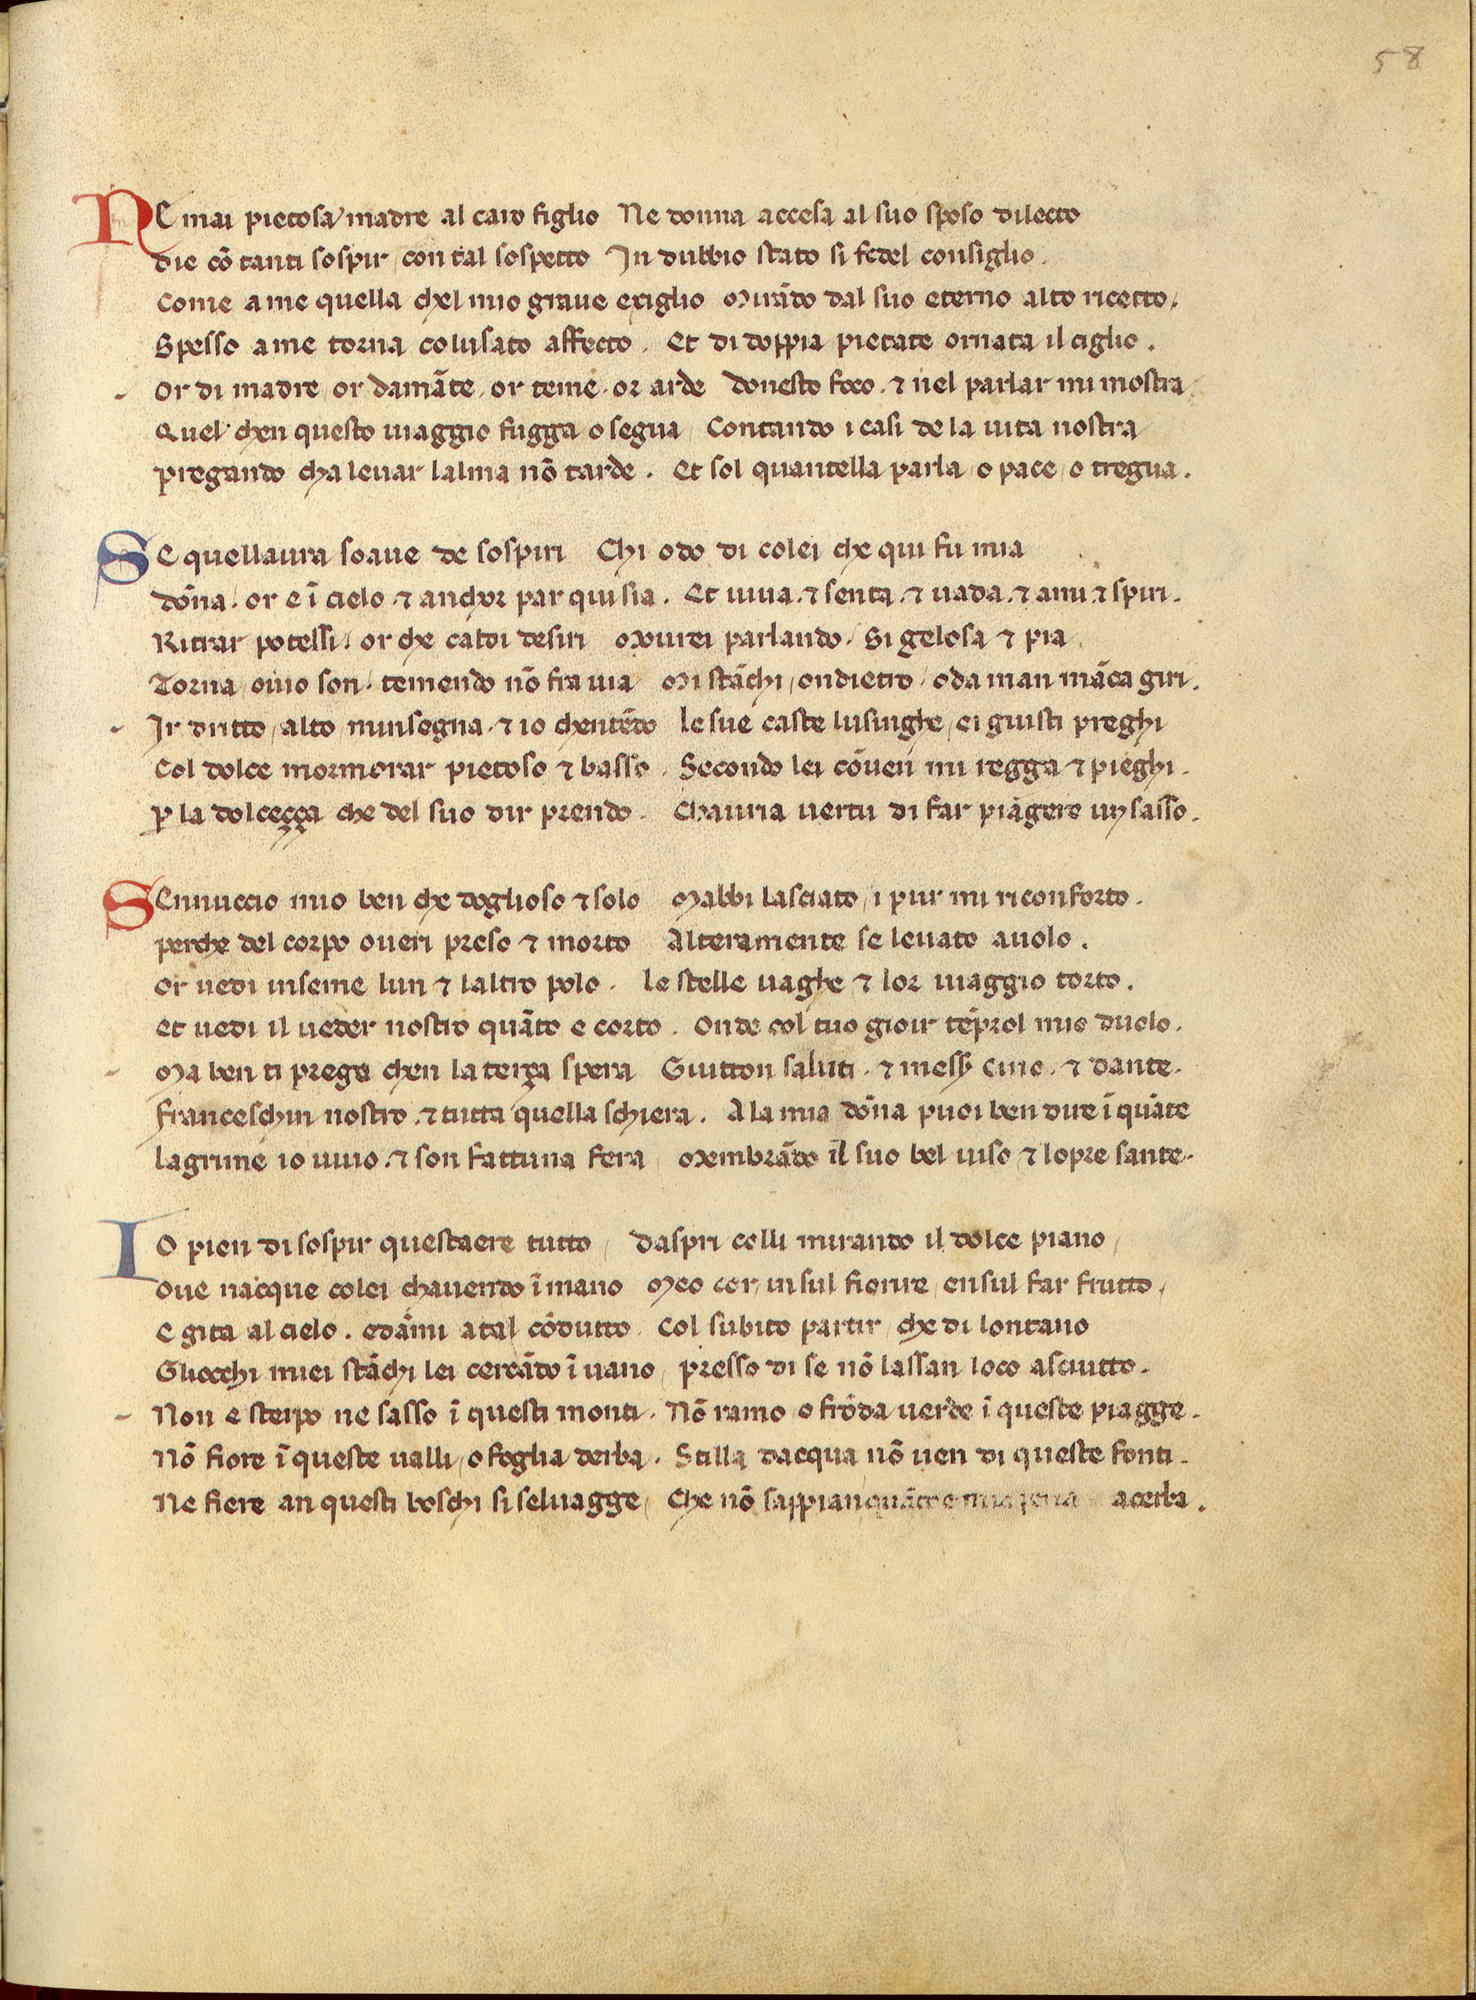 58
NE mai pietosa madre al caro figlio Ne donna accesa al suo sposo dilecto
die cō tanti sospir, con tal sospecto In dubbio stato si fedel consiglio.
Come ame quella chel mio graue exiglio Mirādo dal suo eterno alto ricetto,
Spesso ame torna coluisato affecto. Et di doppia pietate ornata il ciglio.
Or di madre, or damāte, or teme, or arde donesto foco, & nel parlar mi mostra
Quel chen questo uiaggio fugga o segua, Contando i casi de la uita nostra
pregando cha leuar lalma nō tarde. Et sol quantella parla, o pace, o tregua.
SE quellaura soaue de sospiri Chi odo di colei che qui fu mia
dōna, or e ī cielo, & anchor par qui sia. Et uiua, & senta, & uada, & ami, & spiri.
Ritrar potessi, or che caldi desiri Mouirei parlando, Si gelosa & pia
Torna ouio son, temendo nō fra uia Mi stāchi, ondietro, oda man māca giri.
Ir dritto, alto minsegna, & io chentēdo le sue caste lusinghe, ei giusti preghi
Col dolce mormorar pietoso & basso. Secondo lei cōuen mi regga & pieghi.
ꝑ la dolceçça che del suo dir prendo. Chauria uertu di far piāgere un sasso.
SEnnuccio mio ben che doglioso & solo Mabbi lasciato, i pur mi riconforto.
perche del corpo oueri preso & morto Alteramente se leuato auolo.
Or uedi inseme lun & laltro polo. le stelle uaghe & lor uiaggio torto.
Et uedi il ueder nostro quāto e corto. Onde col tuo gioir tēprol mio duolo.
Ma ben ti prego chen la terça spera Guitton saluti, & messer Cino, & dante.
franceschin nostro, & tutta quella schiera. A la mia dōna puoi ben dire ī quāte
lagrime io uiuo, & son fattuna fera Membrādo il suo bel uiso & lopre sante.
IO pien di sospir questaere tutto, daspri colli mirando il dolce piano,
Oue nacque colei chauendo ī mano Meo cor, insul fiorire, ensul far frutto,
E gita al cielo. edāmi atal cōdutto Col subito partir, che di lontano
Gliocchi miei stāchi lei cercādo ī uano, presso di se nō lassan loco asciutto.
Non e sterpo ne sasso ī questi monti. Nō ramo o frōda uerde ī queste piagge.
Nō fiore ī queste ualli, o foglia derba. Stilla dacqua nō uen di queste fonti.
Ne fiere an questi boschi si seluagge, Che nō sappian quāto e mia pena acerba.